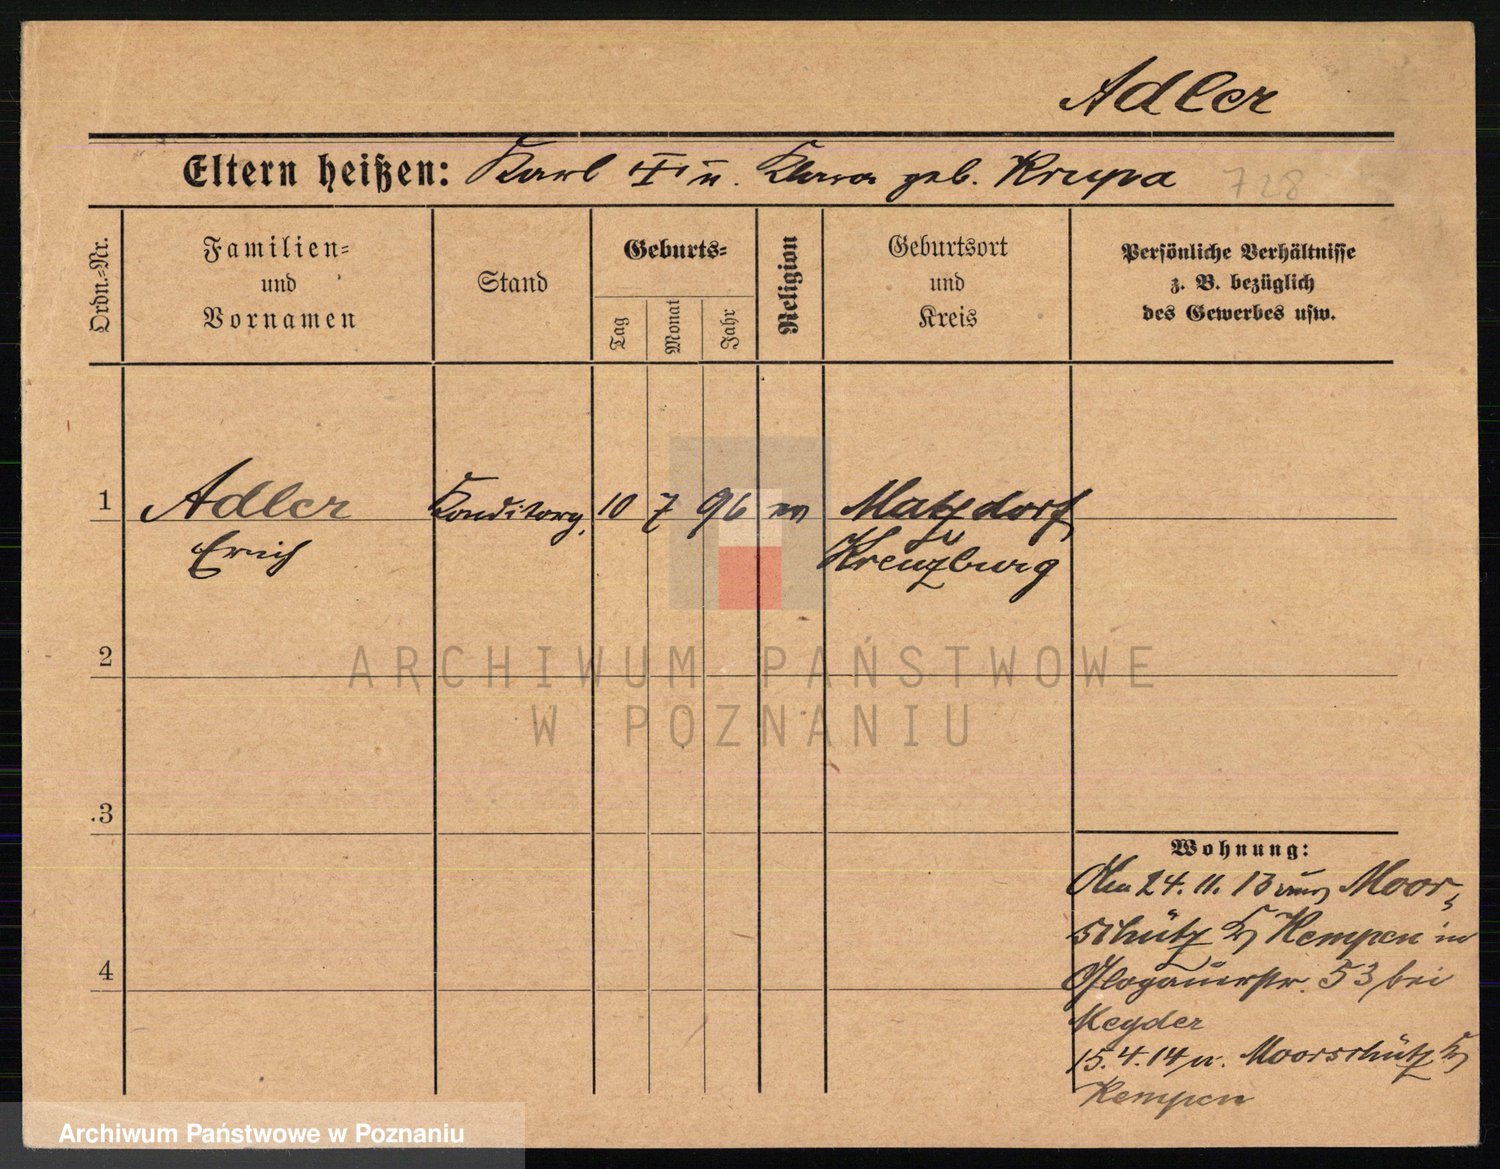 Adler
Eltern heißen: Karl † u. Klara geb. Krupa 728
Ordn.-Nr.
Familien-
und
Vornamen
Stand
Geburts-
Tag
Monat
Jahr
Religion
Geburtsort
und
Kreis
Persönliche Verhältnisse
z. B. bezüglich
des Gewerbes usw.
1 Adler Konditorg. 10 7 96 Matzdorf
Erich Kreuzburg
2
ARCHIWUM PAŃSTWOWE
W POZNANIU
3
Wohnung:
Am 24. 11. 13 von Moor-
schütz Kr Kempen in
Glogauerstr. 53 bei
Meyder
4
15. 4. 14 n. Moorschütz Kr
Kempen
Archiwum Państwowe w Poznaniu